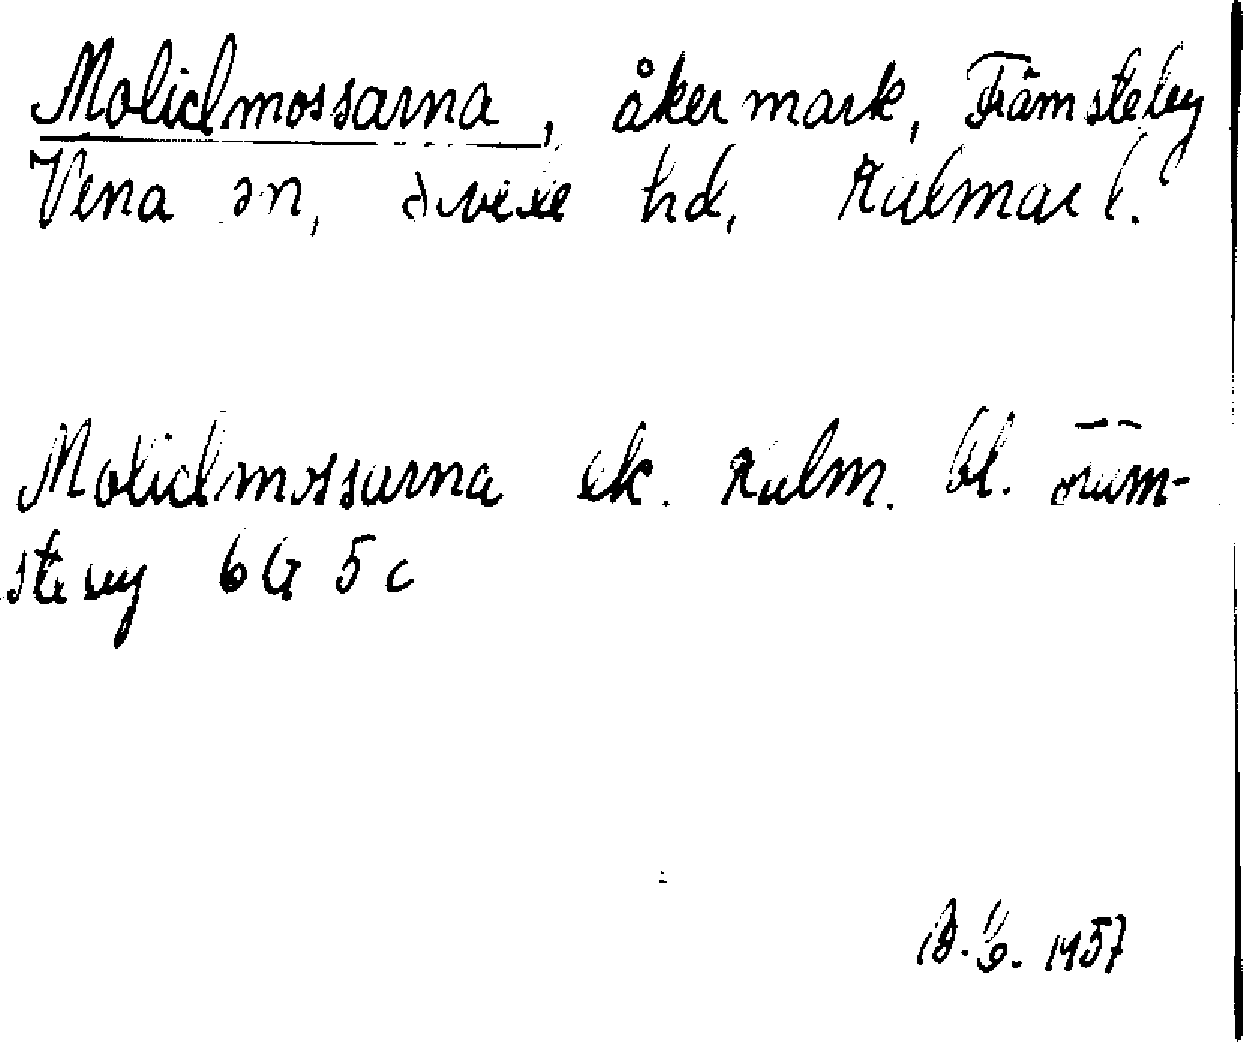 Molidmossarna, åkermark, Främsteby
Vena sn, Sevede hd, Kalmar l.
Molidmossarna ek. Kalm. bl. Främ-
steby 6G 5c
1957